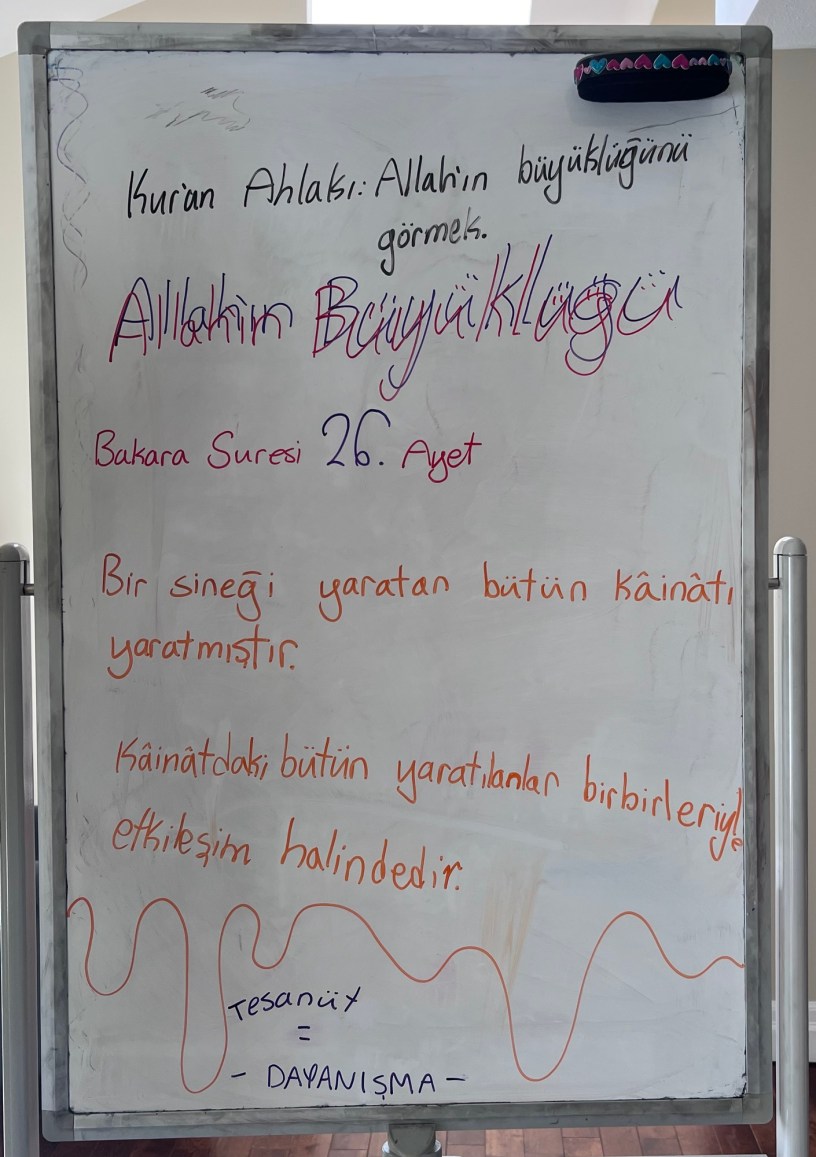 Kur'an Ahlakı: Allah'ın büyüklüğünü
görmek.
Allahın Büyüklüğü
Bakara Suresi 26. Ayet
Bir sineği yaratan bütün kâinâtı
yaratmıştır.
Kâinâtdaki bütün yaratılanlar birbirleriyle
etkileşim halindedir.
Tesanüt
=
- DAYANIŞMA -